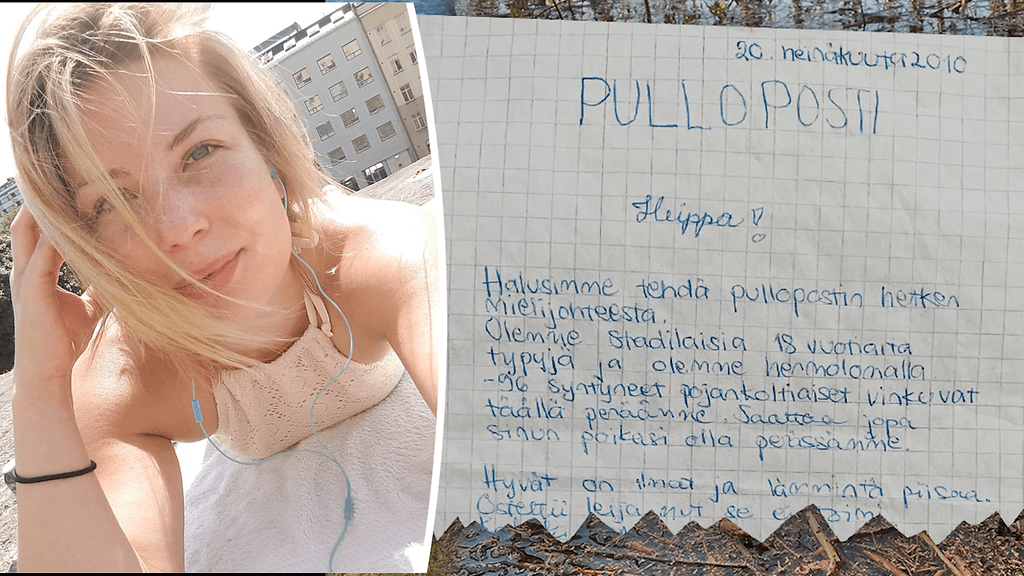 20. heinäkuuta 2010
PULLOPOSTI
Heippa!
Halusimme tehdä pullopostin hetken
mielijohteesta.
Olemme stadilaisia 18 vuotiaita
typyjä ja olemme henmolomalla
-96 syntyneet pojankoltiaiset vinkuvat
täällä peräämme. Saattaa jopa
sinun poikasi olla perässämme.
Hyvät on ilmat ja lämmintä piisaa.
Ostettii leija mut se ei